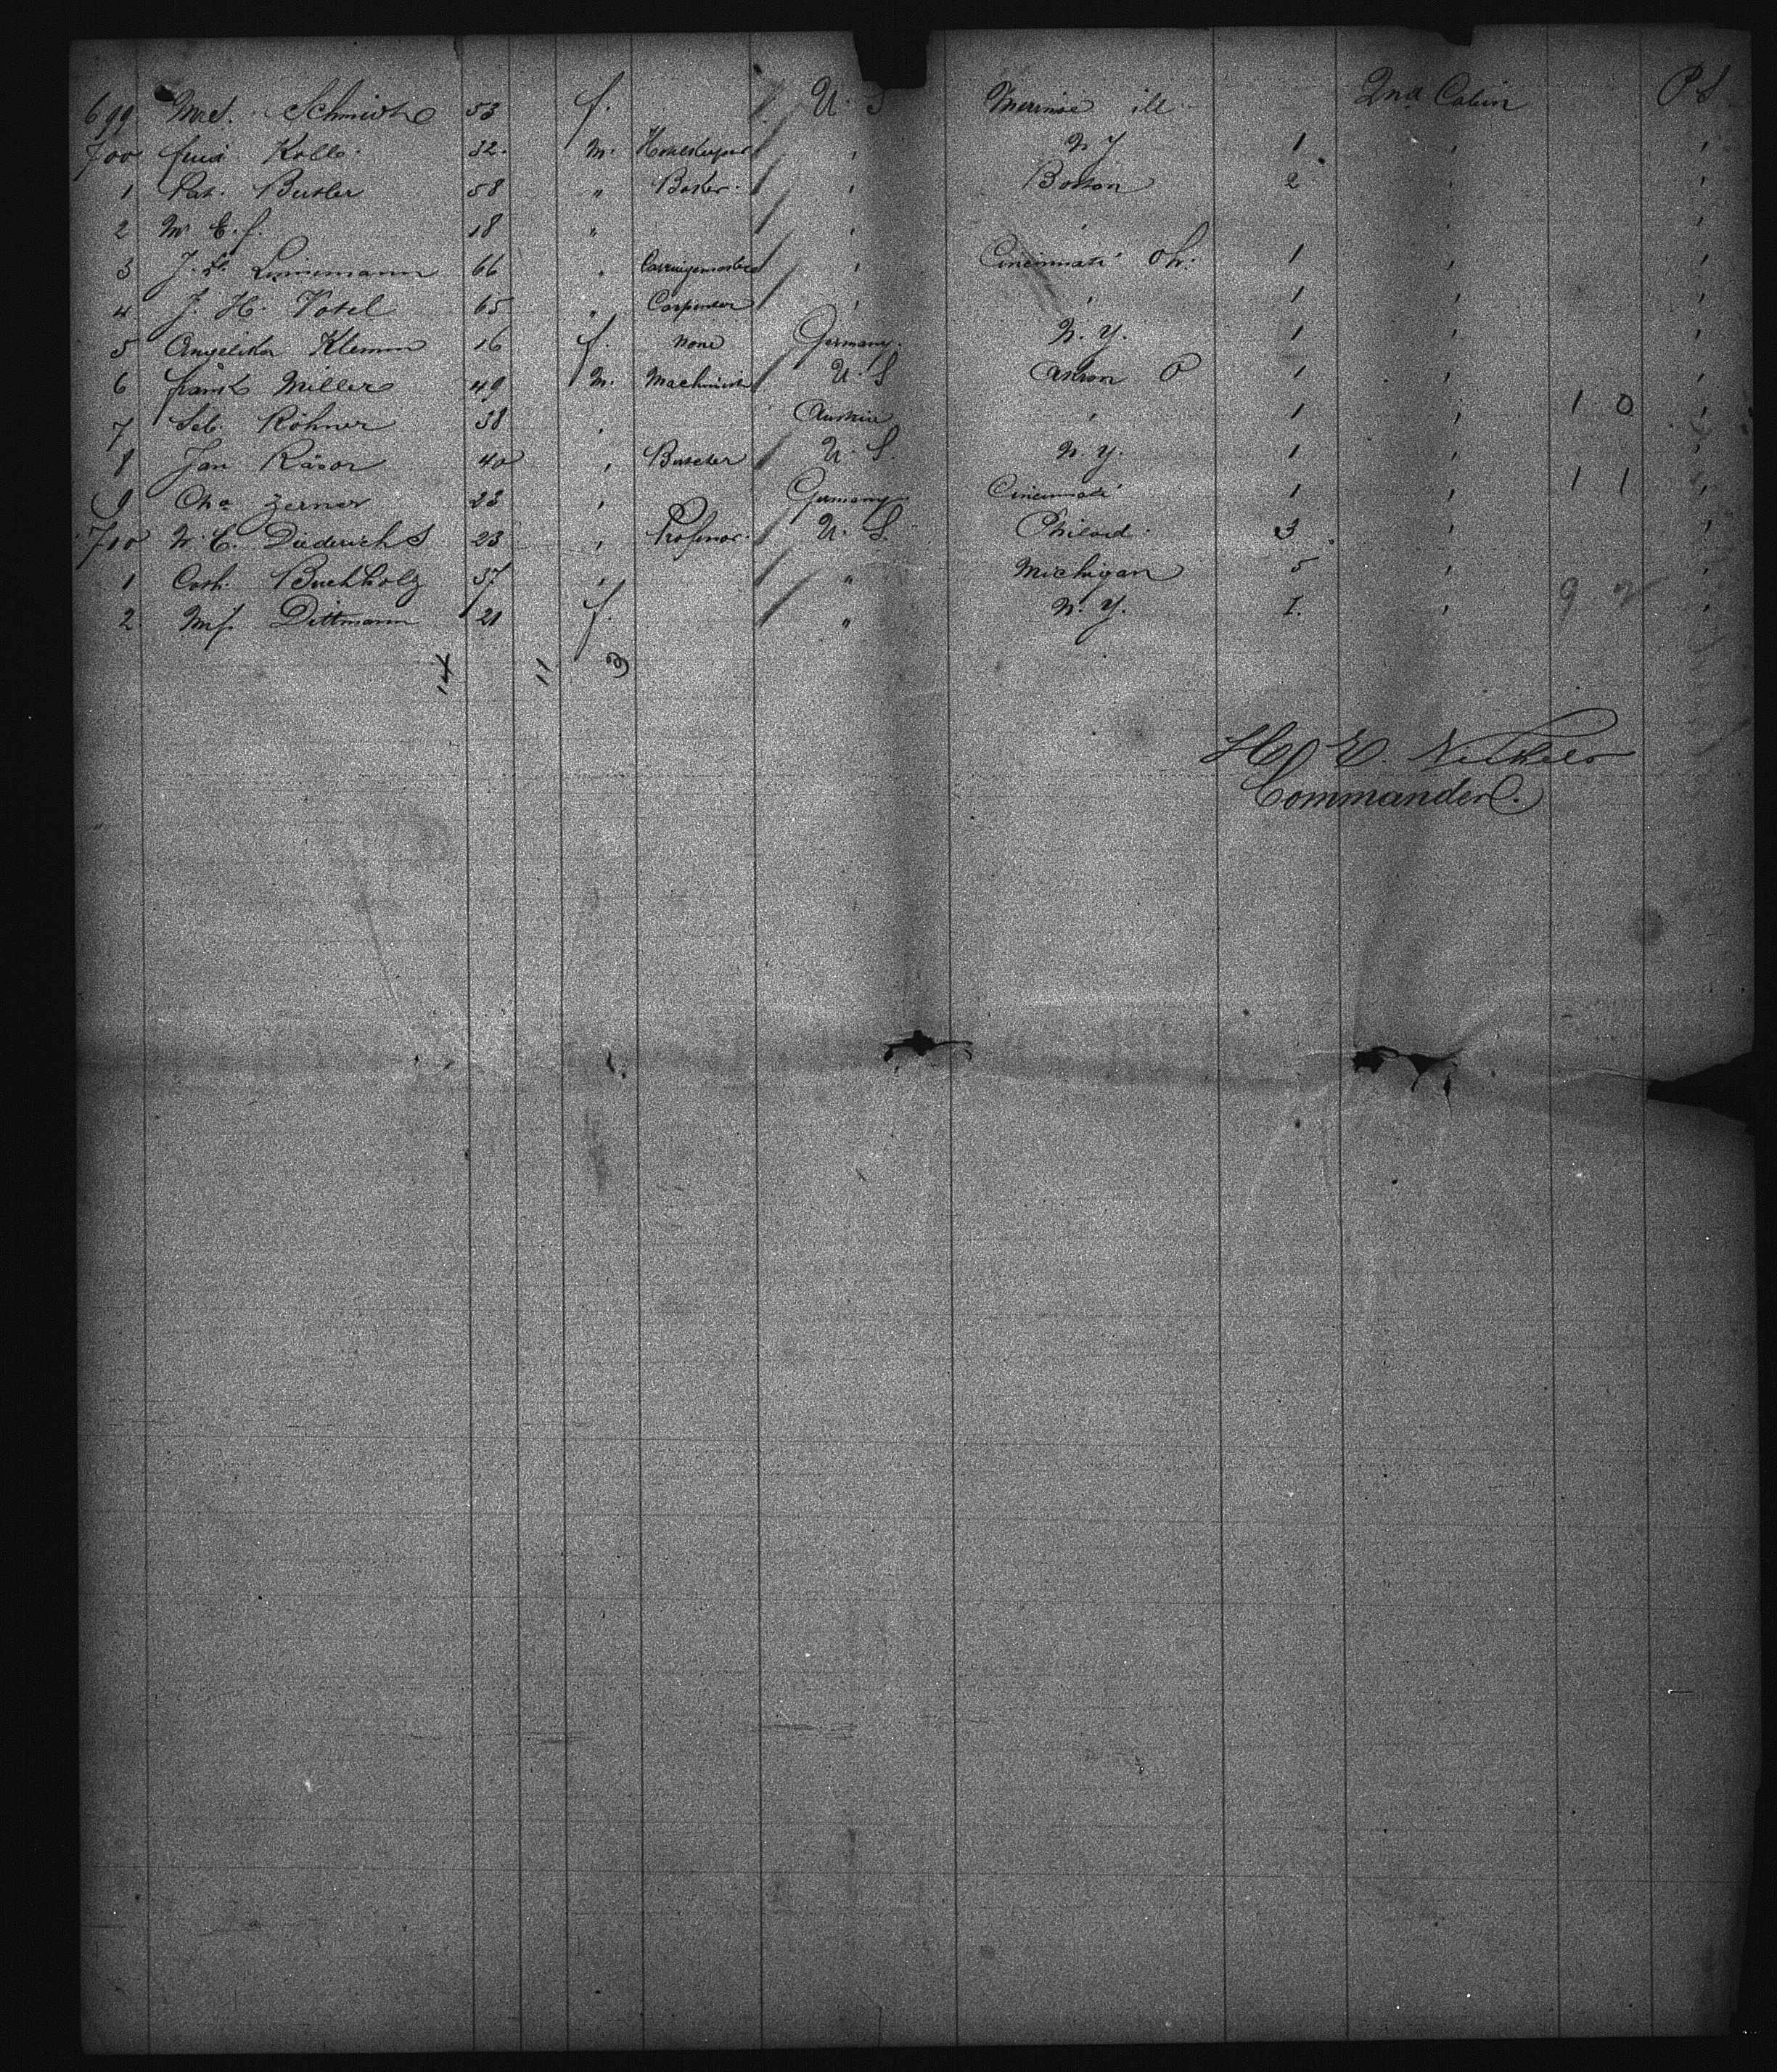 699 Mrs. Schmidt 53 f. U. S ill 2nd Cabin P S
700 Kolb 32. M. Hotelkeeper , N Y 1 , ,
1 Pat. Butler 58 " Baker. , Boston 2 , ,
2 18 " , , , ,
3 J. Linnemann 66 , , Cincinnati Oh. 1 , ,
4 J. H. Votel 65 " Carpenter , , 1 , ,
5 Angelika Klemm 16 f. None Germany. N. Y. 1 , ,
6 frank Miller 49 M. Machinist U. S Akron O 1 , ,
7 Seb. Röhner 38 , Austria , 1 , 1 0 ,
8 Jan 40 , Butcher U. S. N. Y. 1 , ,
9 Chs Zerner 23 , Germany Cincinnati 1 , 1 1 ,
710 W. C. Diederichs 23 , Professor. U. S. Philad. 3 , ,
1 Cath. Buchholz 57 , " Michigan 5 , ,
2 Dittmann 21 f. " N. Y. 1. , 9 2 ,
14 11 3
Commander.